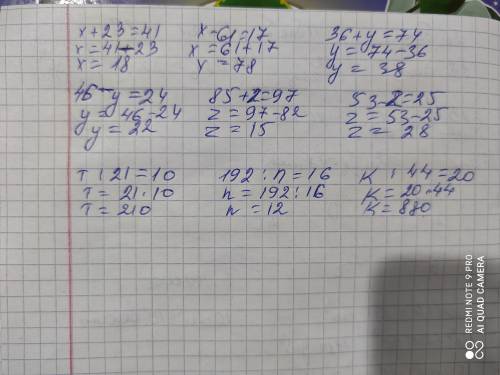 x + 23 = 41
x = 41 - 23
x = 18
x - 61 = 17
x = 61 + 17
x = 78
36 + y = 74
y = 74 - 36
y = 38
46 - y = 24
y = 46 - 24
y = 22
85 + z = 97
z = 97 - 82
z = 15
53 - z = 25
z = 53 - 25
z = 28
T : 21 = 10
T = 21 · 10
T = 210
192 : n = 16
n = 192 : 16
n = 12
K : 44 = 20
K = 20 · 44
K = 880
REDMI NOTE 9 PRO
AI QUAD CAMERA